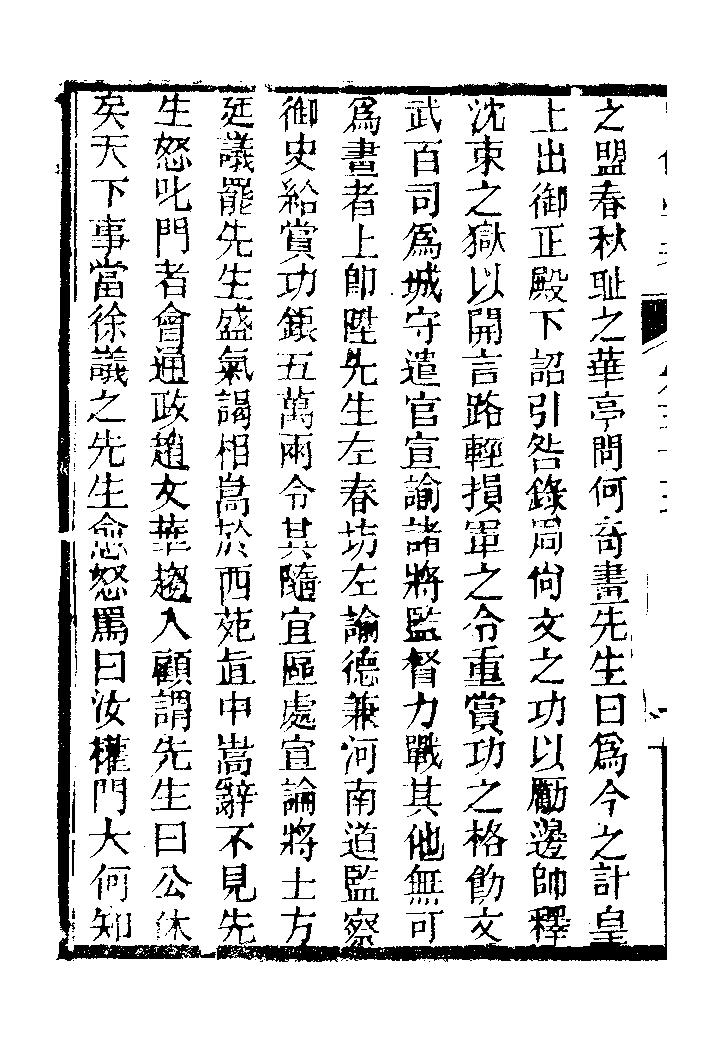 之盟春秋耻之華亭問何奇畫先生曰爲今之計皇
上出御正殿下詔引咎錄周尙文之功以勵邊帥釋
沈束之獄以開言路輕損軍之令重賞功之格飭文
武百司爲城守遣官宣諭諸將監督力戰其他無可
爲畫者上卽陞先生左春坊左諭德兼河南道監察
御史給賞功銀五萬兩令其隨宜區處宣諭將士方
廷議罷先生盛氣謁相嵩於西苑直中嵩辭不見先
生怒叱門者會通政趙文華趨入顧謂先生曰公休
矣天下事當徐議之先生愈怒罵曰汝權門犬何知